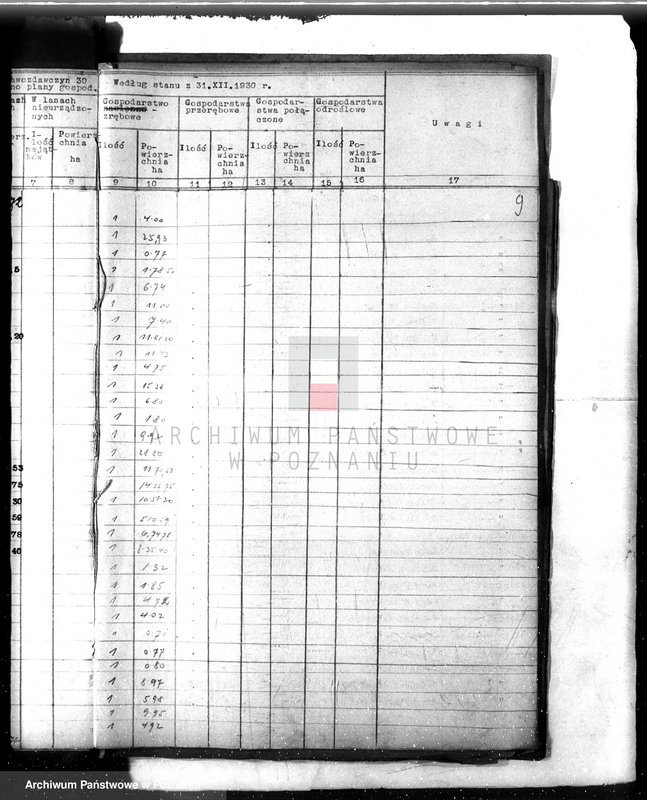 hwozdawczyn 30
no plany gospod.
Według stanu z 31.XII.1930 r.
W lasach
nieurządzo-
nych
Gospodarstwo
zrębowe
Gospodarstwa
przerębowe
Gospodar-
stwa połą-
czone
Gospodarstwa
odroślowe
U w a g i
I-
lość
mająt-
ków
Powierz
chnia
ha
Ilość
Po-
wierz-
chnia
ha
Ilość
Po-
wierz-
chnia
ha
Ilość
Po-
wierz
chnia
ha
Ilość
Po-
wierz-
chnia
ha
7 8 9 10 11 12 13 14 15 16 17
72
9
1 4.00
1 25,93
1 0.77
,5 1 1.78.50
1 6.74
1 11.00
1 7.40
,20 1
1
1 4.75
1 15.32
1 6.80
1 1.80
1
1 28.80
53 1
75
30 1 10.51.20
59 1 510.59
78 1 6,74.78
40 1 8.35.40
1 1.32
1 1.85
1
1 4.02
1
1 0.77
1 0.80
1 8.97
1 5.98
1 9.95
1 4.92
ARCHIWUM PAŃSTWOWE
W POZNANIU
Archiwum Państwowe w P